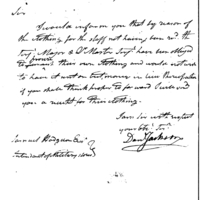 Sir
I would inform you that by reason of
the Clothing for the Staff not having come on the
Serj. Major & Qr Master Serj. have been obliged
to procure their own Clothing and would not wish
to have it
if you shall think proper to forward I will send
you a receipt for their Clothing.
I am Sir with respect
your Obt. Servt.
Danl Jackson
Samuel Hodgdon Esqr.
Intendant of Military Stores